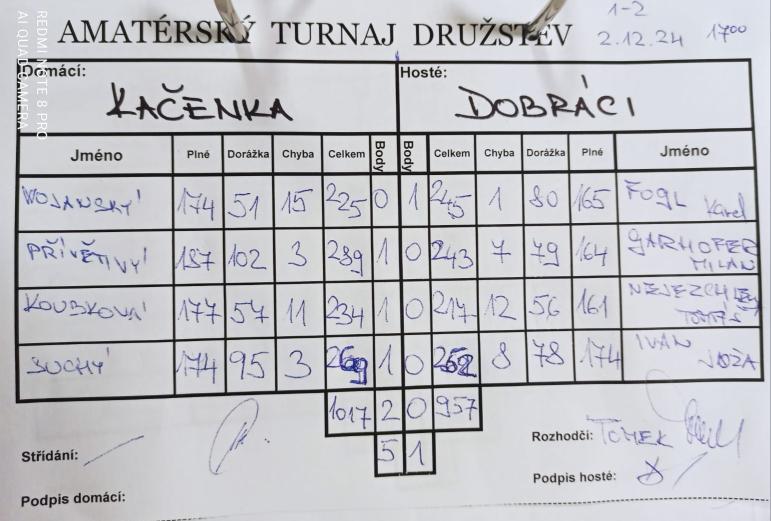 1-2
AMATÉRSKÝ TURNAJ DRUŽSTEV 2.12.24 17⁰⁰
Domácí: Hosté:
KAČENKA DOBRÁCI
Jméno Plné Dorážka Chyba Celkem Body Body Celkem Chyba Dorážka Plné Jméno
VOJANSKÝ 174 51 15 225 0 1 245 1 80 165 FOGL Karel
PŘÍVĚTIVÝ 187 102 3 289 1 0 243 7 79 164 GARHOFER MILAN
KOUBKOVÁ 177 57 11 234 1 0 217 12 56 161 NEJEZCHLEB TOMÁŠ
SUCHÝ 174 95 3 269 1 0 252 8 78 174 IVAN JOŽA
1017 2 0 957
5 1
Střídání: Rozhodčí: TOMEK
Podpis domácí: Podpis hosté:
REDMI NOTE 8 PRO
AI QUAD CAMERA